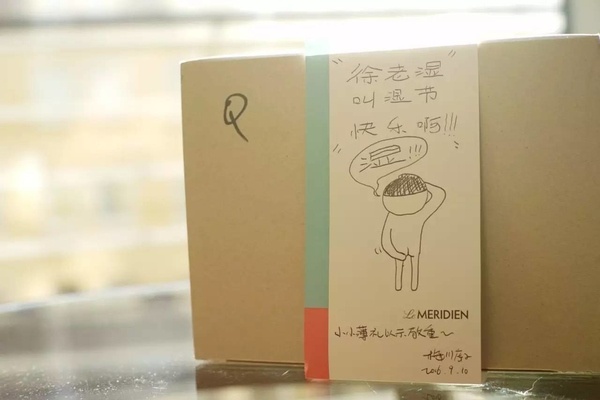 Q
"徐老湿
叫湿节
快乐啊!!!"
湿!!!
Le MERIDIEN
小小薄礼以示敬重~
2016.9.10